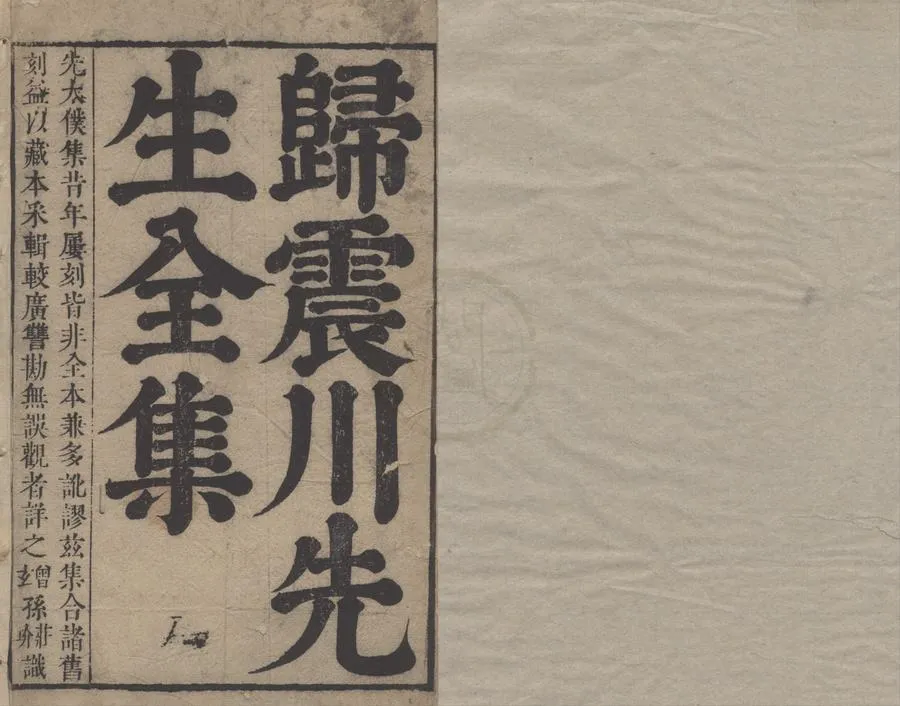 歸震川先
生全集
先太僕集昔年屢刻皆非全本兼多訛謬茲集合諸舊
刻益以藏本采輯較廣讐勘無誤觀者詳之曾玄孫莊玠識